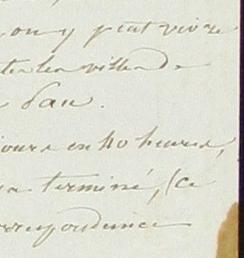 on y peut vivre
toutes les villes de
Pau.
jours en 40 heures,
a terminé, (ce
rrespondance